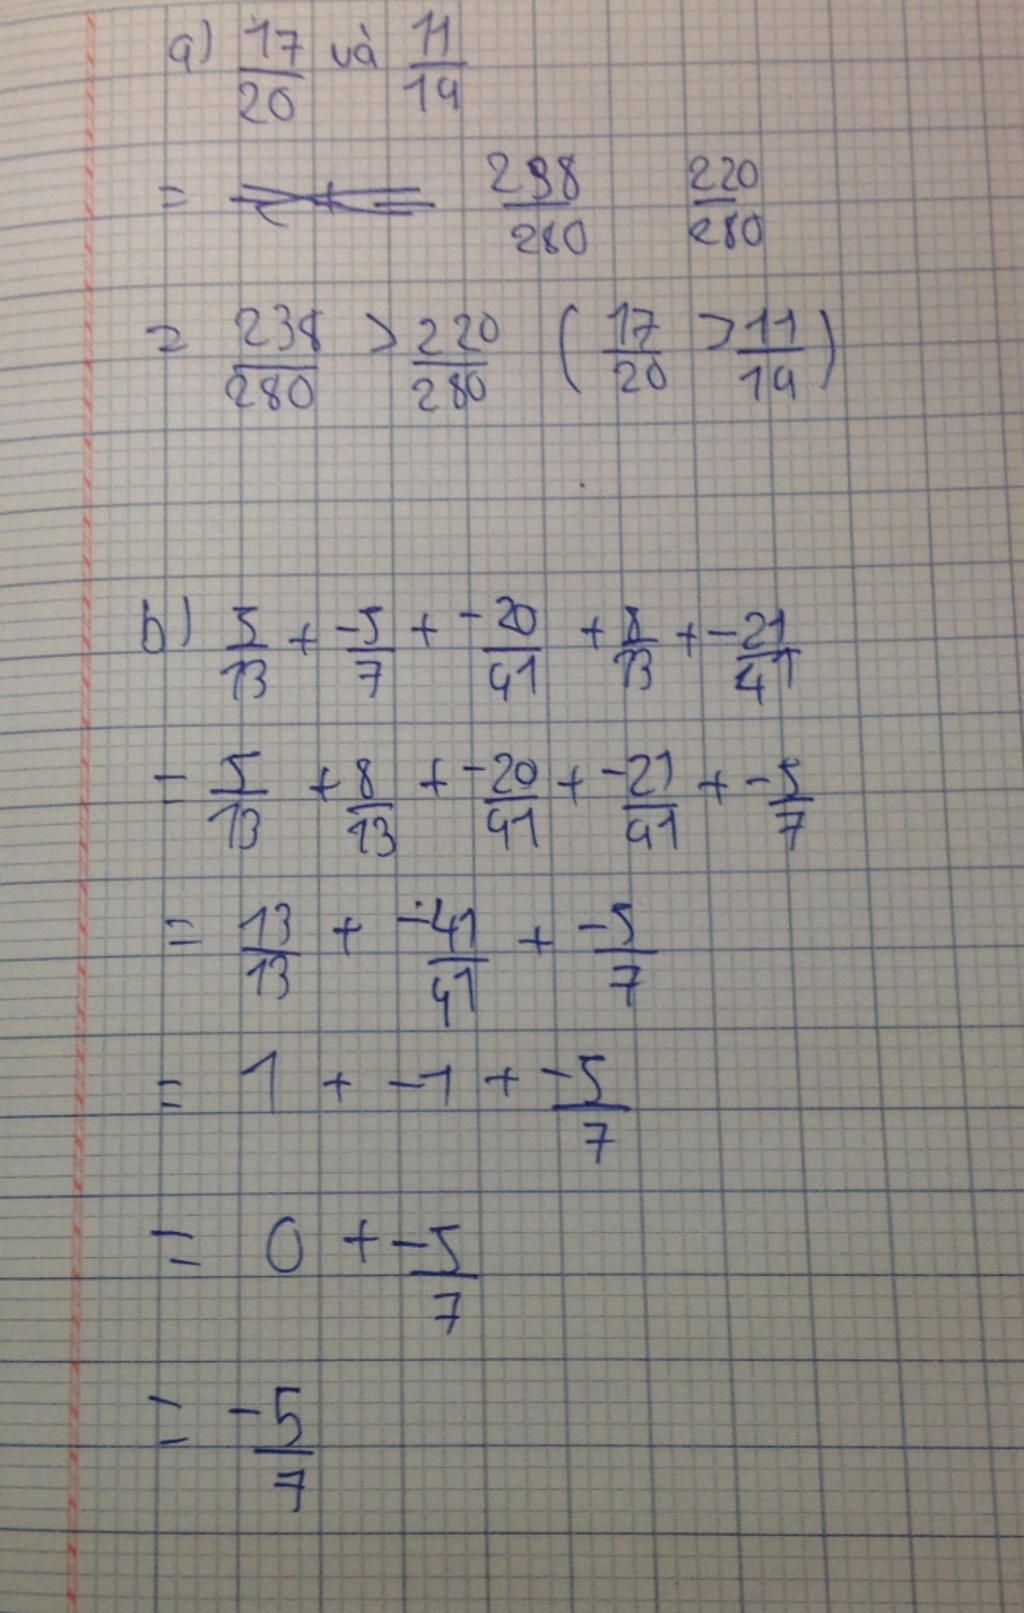 a) 17/20 và 11/14
= 238/280 220/280
= 238/280 > 220/280 ( 17/20 > 11/14 )
b) 5/13 + -5/7 + -20/41 + 8/13 + -21/41
= 5/13 + 8/13 + -20/41 + -21/41 + -5/7
= 13/13 + -41/41 + -5/7
= 1 + -1 + -5/7
= 0 + -5/7
= -5/7